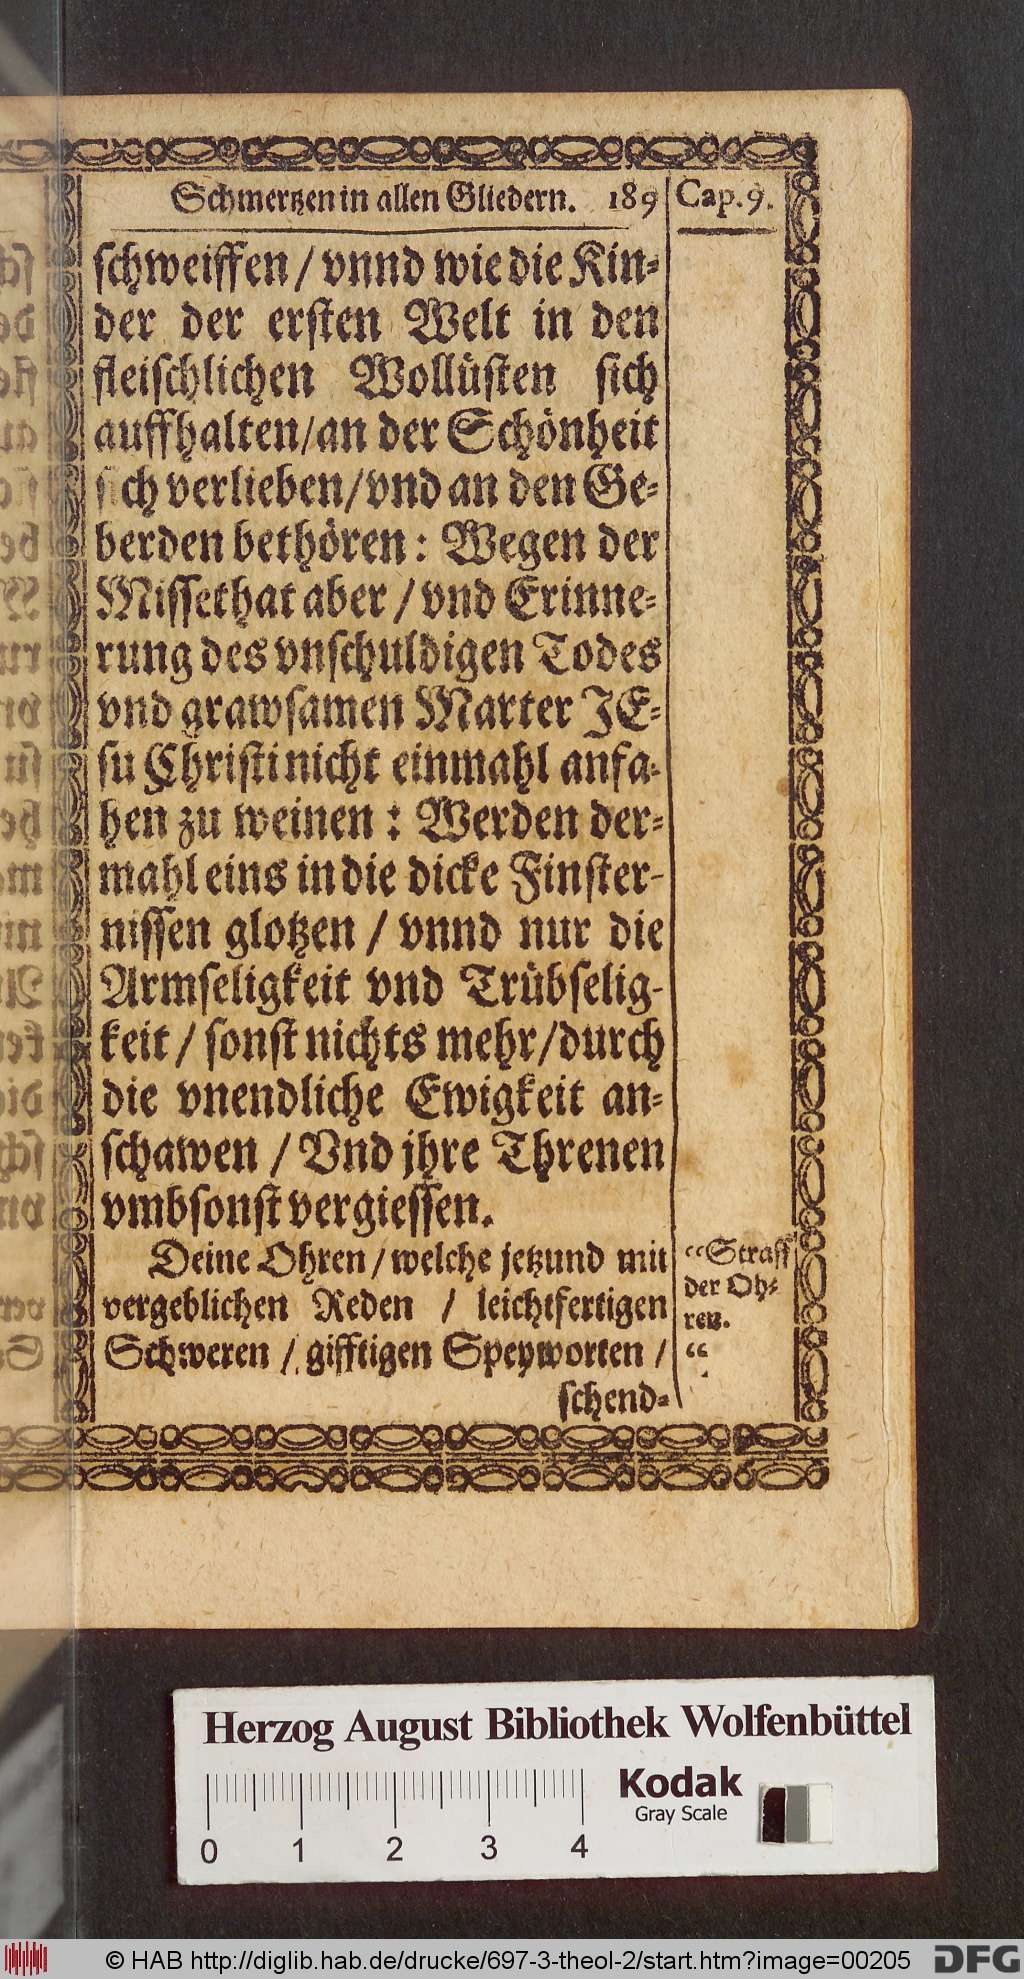 Schmertzen in allen Gliedern. 189 Cap. 9.
schweiffen / vnnd wie die Kin-
der der ersten Welt in den
fleischlichen Wollüsten sich
auffhalten / an der Schönheit
sich verlieben / vnd an den Ge-
berden bethören : Wegen der
Missethat aber / vnd Erinne-
rung des vnschuldigen Todes
vnd grawsamen Marter JE-
su Christi nicht einmahl anfa-
hen zu weinen : Werden der-
mahl eins in die dicke Finster-
nissen glotzen / vnnd nur die
Armseligkeit vnd Trübselig-
keit / sonst nichts mehr / durch
die vnendliche Ewigkeit an-
schawen / Vnd jhre Threnen
vmbsonst vergiessen.
Deine Ohren / welche jetzund mit
vergeblichen Reden / leichtfertigen
Schweren / gifftigen Speyworten /
schend-
“Straff
der Oh-
ren.
“
Herzog August Bibliothek Wolfenbüttel
Kodak
Gray Scale
0 1 2 3 4
© HAB http://diglib.hab.de/drucke/697-3-theol-2/start.htm?image=00205
DFG